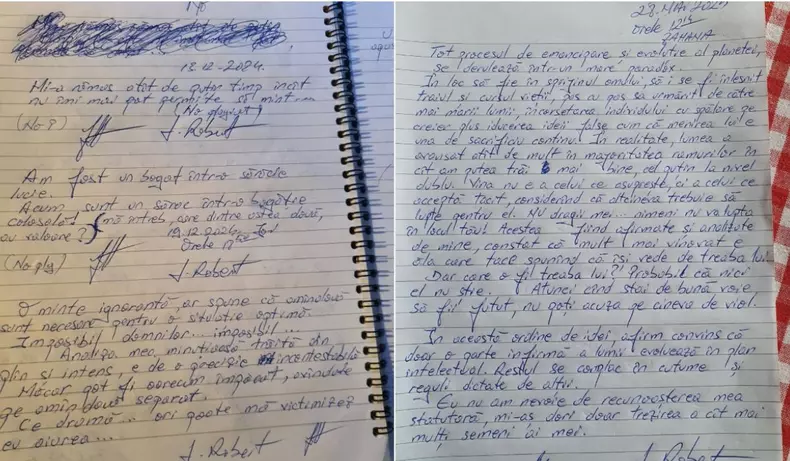 18.12.2024.
Mi-a rămas atît de puțin timp încît
nu îmi mai pot permite să mint...
(No plagiat)
(No P)
J. Robert
Am fost un bogat într-o sărăcie
lucie.
Acum sunt un sărac într-o bogăție
colosală! (mă întreb, care dintre astea două,
au valoare?)
19.12.2024
Orele
(No plg)
J. Robert
O minte ignorantă, ar spune că amîndouă
sunt necesare pentru o situație optimă.
Imposibil domnilor... imposibil...
Analiza mea, minuțioasă, trăită din
plin și intens, e de o precizie incontestabilă
Măcar pot fi oarecum împăcat, avîndu-le
pe amîndouă separat.
Ce dramă... ori poate mă victimizez
eu aiurea...
J. Robert
28. MAI 202
Orele 12
ZAHANIA
Tot procesul de emancipare și evoluție al planetei,
se derulează într-un mare paradox.
În loc să fie în sprijinul omului, să i se fi înlesnit
traiul și cursul vieții, pas cu pas s-a urmărit de către
mai marii lumii, încorsetarea individului cu spălare pe
creier plus inducerea ideii false cum că menirea lui e
una de sacrificiu continu. În realitate, lumea a
avansat atît de mult în majoritatea ramurilor în
cît am putea trăi mai bine, cel puțin la nivel
dublu. Vina nu e a celui ce asuprește, ci a celui ce
acceptă tacit, considerînd că altcineva trebuie să
lupte pentru el. Nu dragii mei... nimeni nu va lupta
în locul tău! Acestea fiind afirmate și analizate
de mine, constat că mult mai vinovat e
ăla care tace spunînd că își vede de treaba lui.
Dar care o fi treaba lui? Probabil că nici
el nu știe. Atunci cînd stai de bună voie,
să fii futut, nu poți acuza pe cineva de viol.
În această ordine de idei, afirm convins că
doar o parte infirmă a lumii evoluează în plan
intelectual. Restul se complac în cutume și
reguli dictate de alții.
Eu nu am nevoie de recunoașterea mea
statutară, mi-aș dori doar trezirea a cît mai
mulți semeni ai mei.
J. Robert